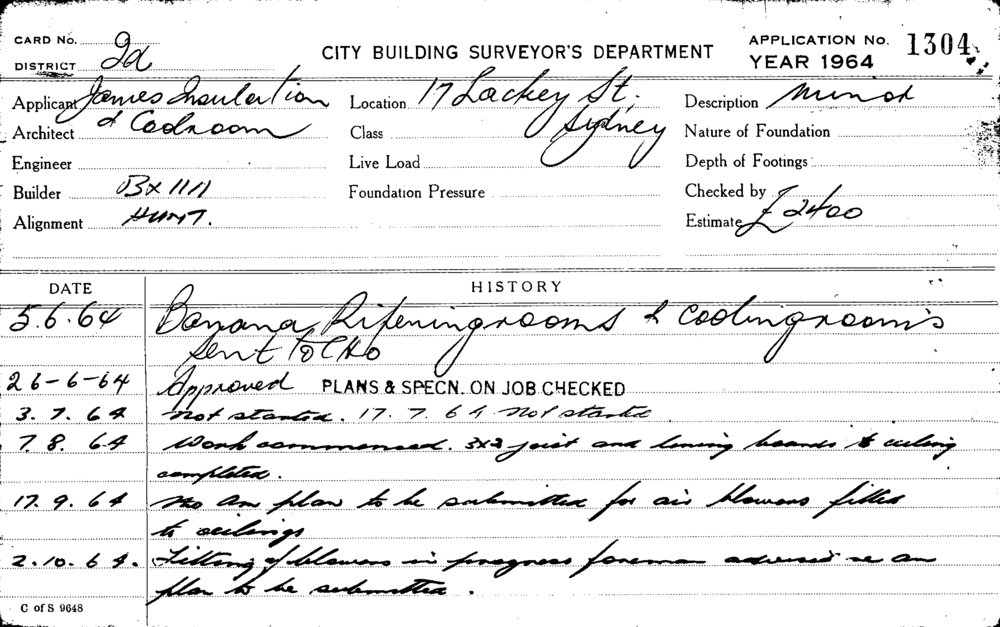 CARD No. 2d
DISTRICT
CITY BUILDING SURVEYOR'S DEPARTMENT
APPLICATION No. 1304
YEAR 1964
Applicant James Insulation
Location 17 Lackey St.
Sydney
Description Minor
Architect & Coolroom
Class
Nature of Foundation
Engineer
Live Load
Depth of Footings
Builder BX 1111
Foundation Pressure
Checked by
Alignment HUNT.
Estimate £2400
DATE HISTORY
5.6.64 Banana Ripeningrooms & Coolingroom's
sent to CHO
26-6-64 Approved PLANS & SPECN. ON JOB CHECKED
3. 7. 64 Not started. 17. 7. 64 Not started
7. 8. 64 Work commenced. 3x2 joist and lining boards to ceiling
completed.
17. 9. 64 No Am plan to be submitted for air blowers fitted
to ceilings
2.10.64. Fitting of blowers in progress foreman advised re am
plan to be submitted.
C of S 9648